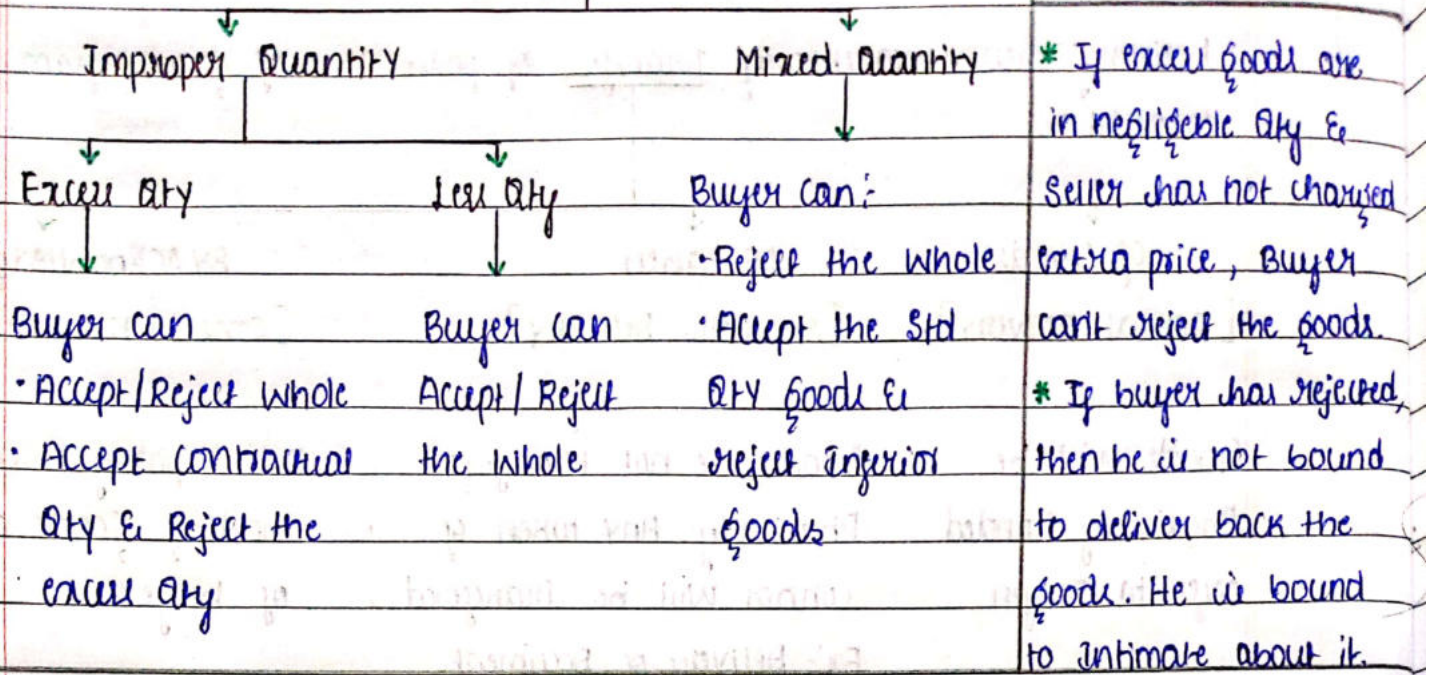 Improper Quantity
Mixed Quantity
Excess Qty
Less Qty
Buyer can
• Accept/Reject whole
• Accept contractual
Qty & Reject the
excess Qty
Buyer can
Accept/Reject
the whole
Buyer can:-
• Reject the whole
• Accept the Std
Qty goods &
reject inferior
goods
* If excess goods are
in negligeble Qty &
Seller has not charged
extra price, Buyer
can't reject the goods.
* If buyer has rejected,
then he is not bound
to deliver back the
goods. He is bound
to Intimate about it.